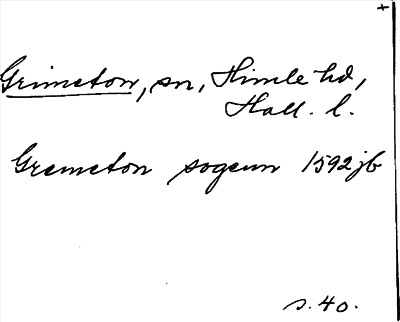 +
Grimeton, sn, Himle hd,
Hall. l.
Gremeton sogenn 1592 jb
s. 40.